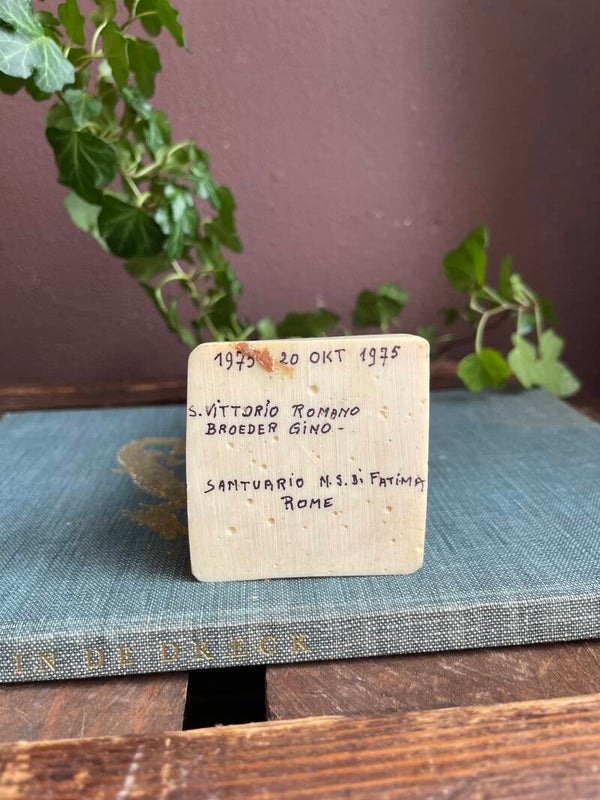 1975 20 OKT 1975
S. VITTORIO ROMANO
BROEDER GINO -
SANTUARIO N.S. Di FATIMA
ROME
IN DE DRAECK